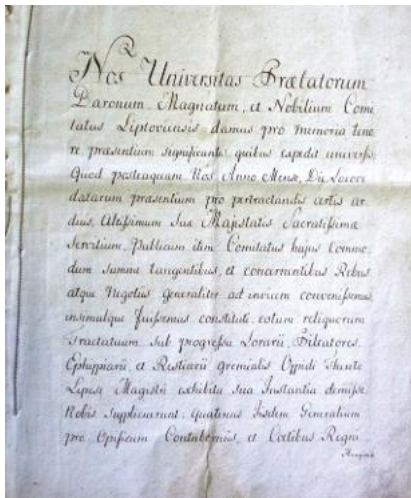 Nos Universitas Prælatorum
Baronum Magnatum, et Nobilium Comi
tatus Liptoviensis damus pro memoria teno
re præsentium significantes quibus expedit universis,
Quod posteaquam Nos Anno, Mense, Die Locoq
datarum præsentium pro pertractandis certis ar
duis, Altissimum Suæ Majestatis Sacratissimæ
Servitium, Publicum item Comitatus hujus Commo
dum summe tangentibus, et concernentibus Rebus
atque Negotiis generaliter ad invicem convenissemus,
insimulque fuissemus constituti; eotum reliquorum
Tractatuum sub progressu Lorarii,
Ephippiarii, et Restiarii gremialis Oppidi Szente
Magistri exhibita sua Instantia demisse
Nobis supplicarunt: quatenus Iisdem Generalium
pro Opificum Contuberniis, et Coetibus Regni